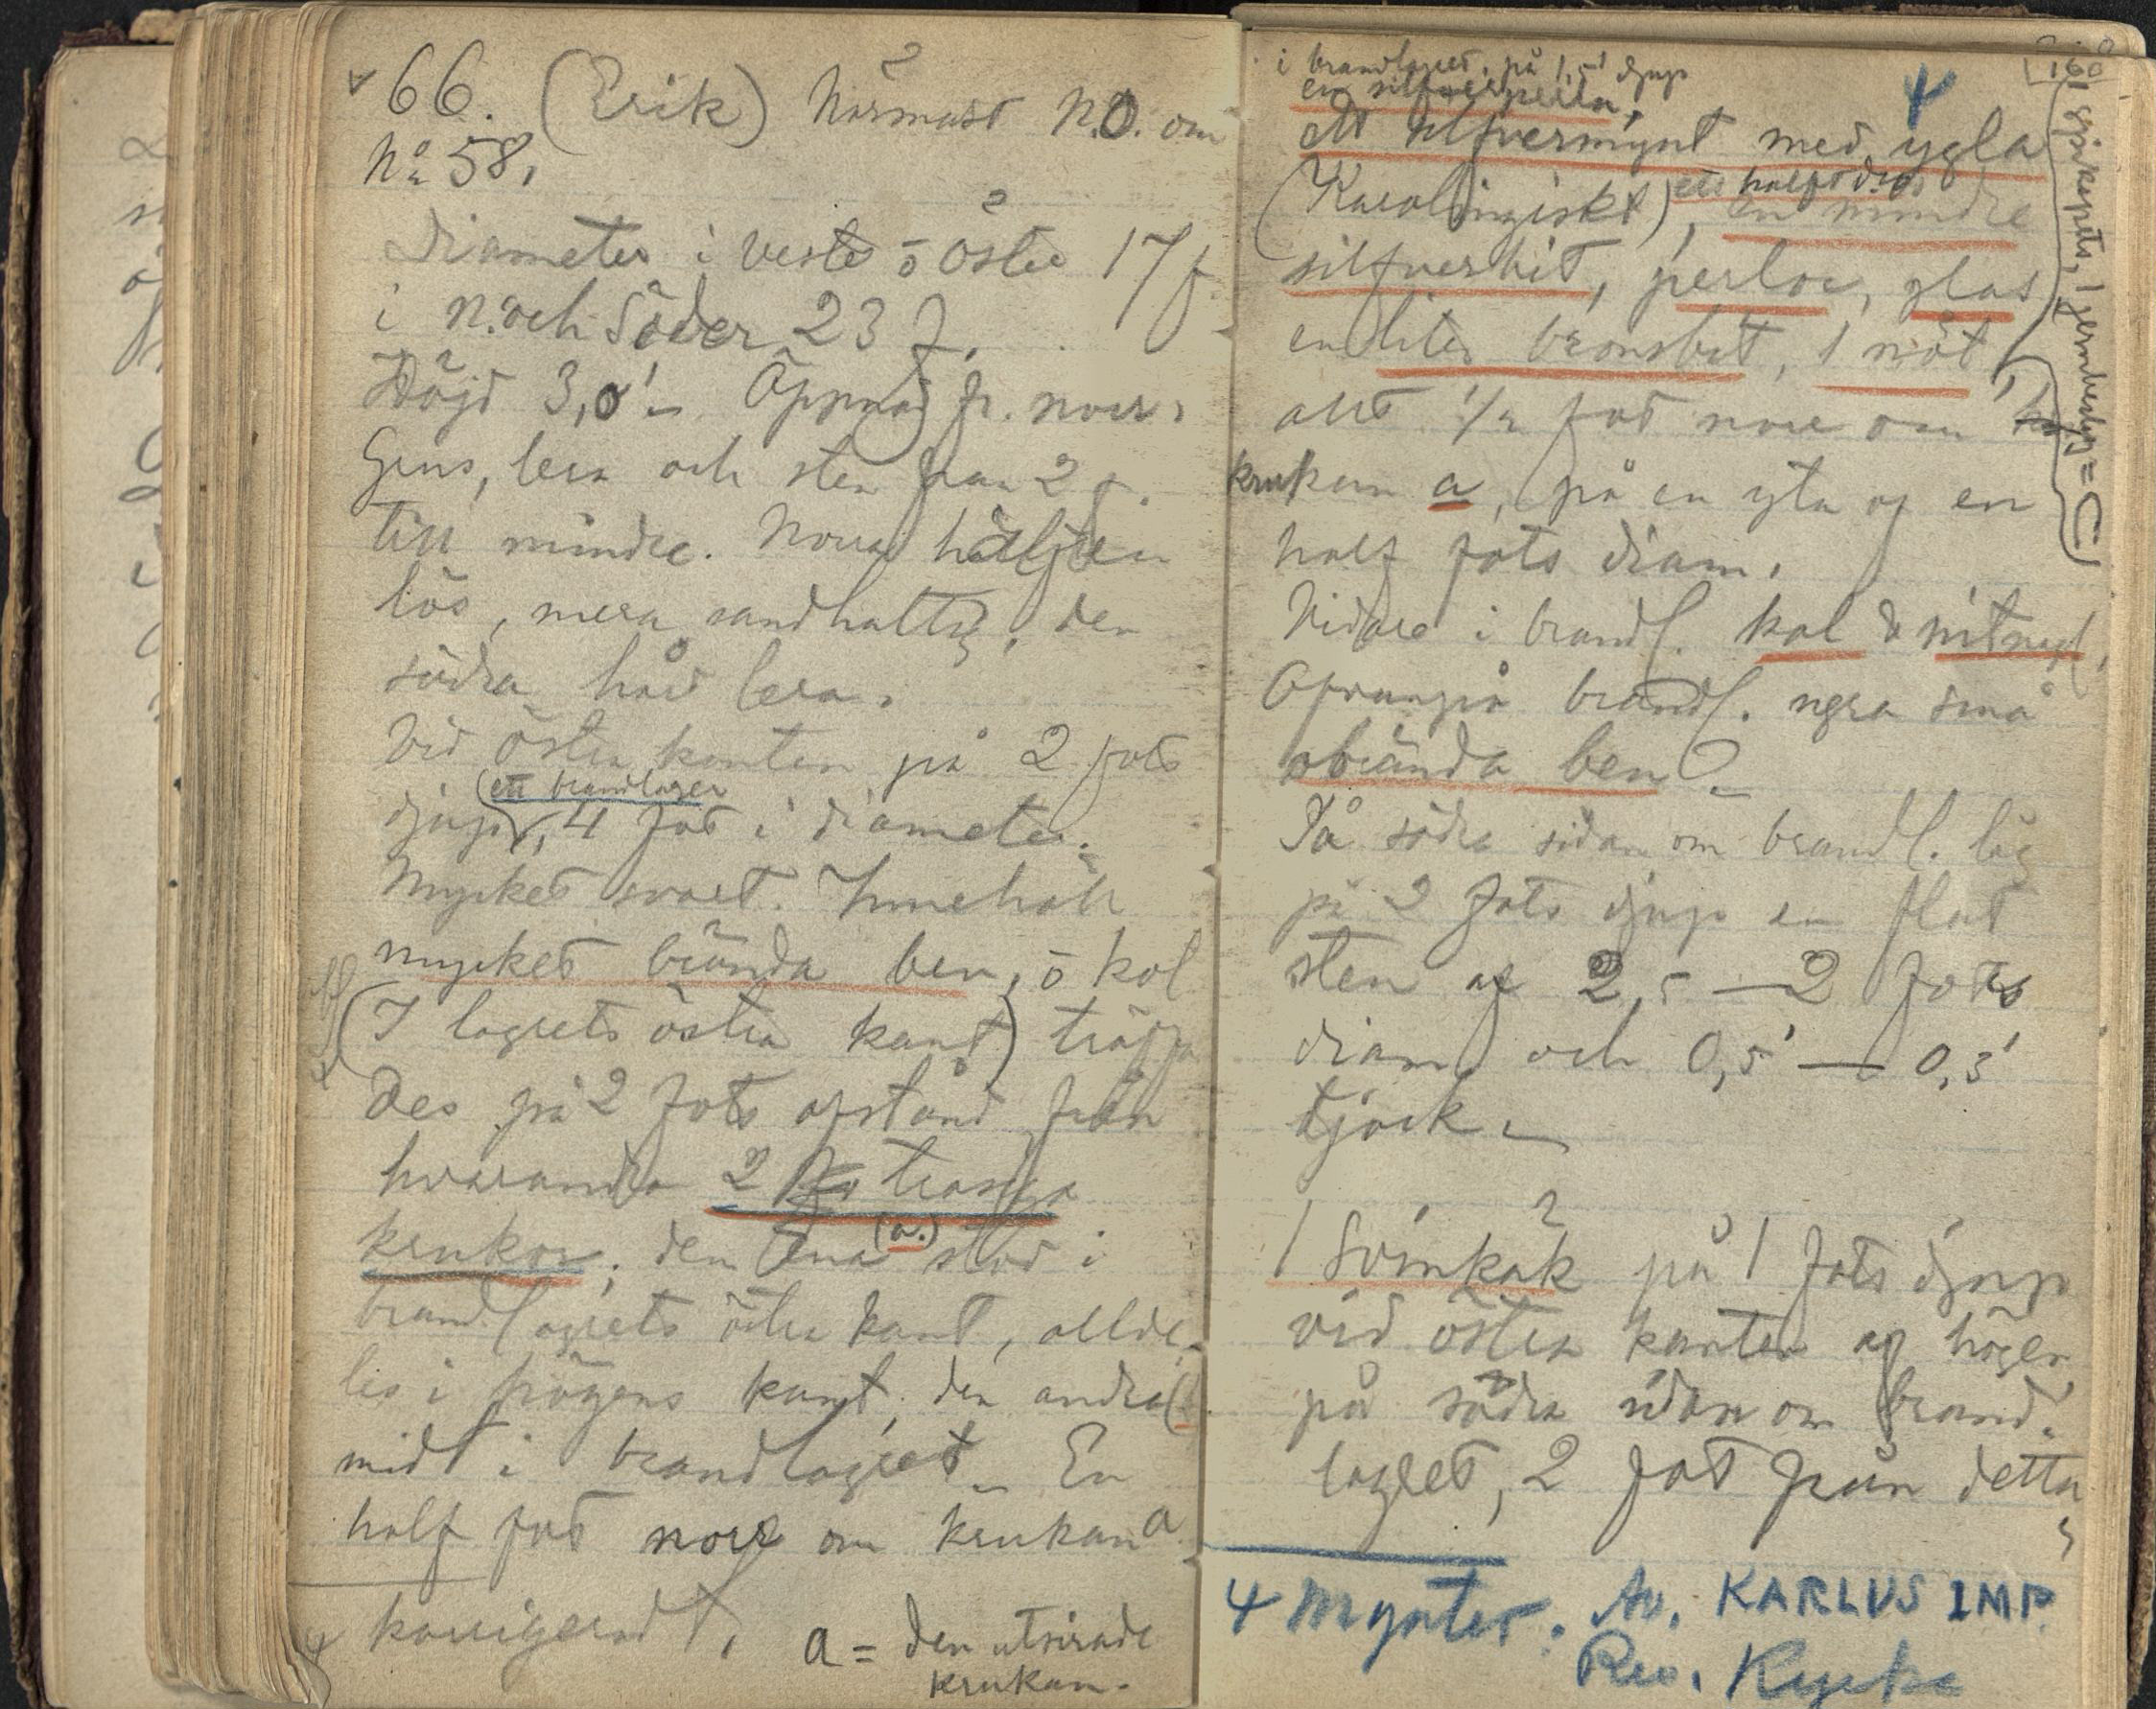 66. (Erik) Närmast N.O. om
No 58.
Diameter i vester o öster 17 f
i N. och Söder 23 f.
Höjd 3,0' – Öppnad fr. norr.
Grus, lera och sten från 2 f.
till mindre. Norra hälften
lös, mera sandhaltig, den
södra hård lera.
Vid östra kanten på 2 fots
djup, (ett brandlager) 4 fot i diameter.
Mycket svart. Innehöll
mycket brända ben, o kol
(I lagrets östra kant) träffa
des på 2 fots afstånd från
hvarandra 2 trasiga
krukor; den ena (a.) stod i
brandlagrets östra kant, allde-
les i högens kant, den andra
midt i brandlagret – En
half fot norr om krukan a
korrigeradt.
a = den utsirade
krukan.
160
i brandlagret, på 1,5' djup
en silfverperla,
ett silfvermynt med ögla
(Karolingiskt), ett halft do
en mindre
silfverbit, perlor, glas
en liten bronsbit, 1 nöt
1 spikspets, 1 jernbeslag =
allt 1/2 fot norr om
krukan a, på en yta af en
half fots diam.
Vidare i brandl. kol & nitnagl.
Ofvanpå brandl. ngra små
obrända ben.
På södra sidan om brandl. låg
på 2 fots djup en flat
sten af 2,5 – 2 fots
diam. och 0,5' – 0,3'
tjock –
1 Svinkäk på 1 fots djup
vid östra kanten af högen
på södra sidan om brand-
lagret, 2 fot från detta
4 Myntet. Av. KARLVS IMP.
Rev. Kyrka